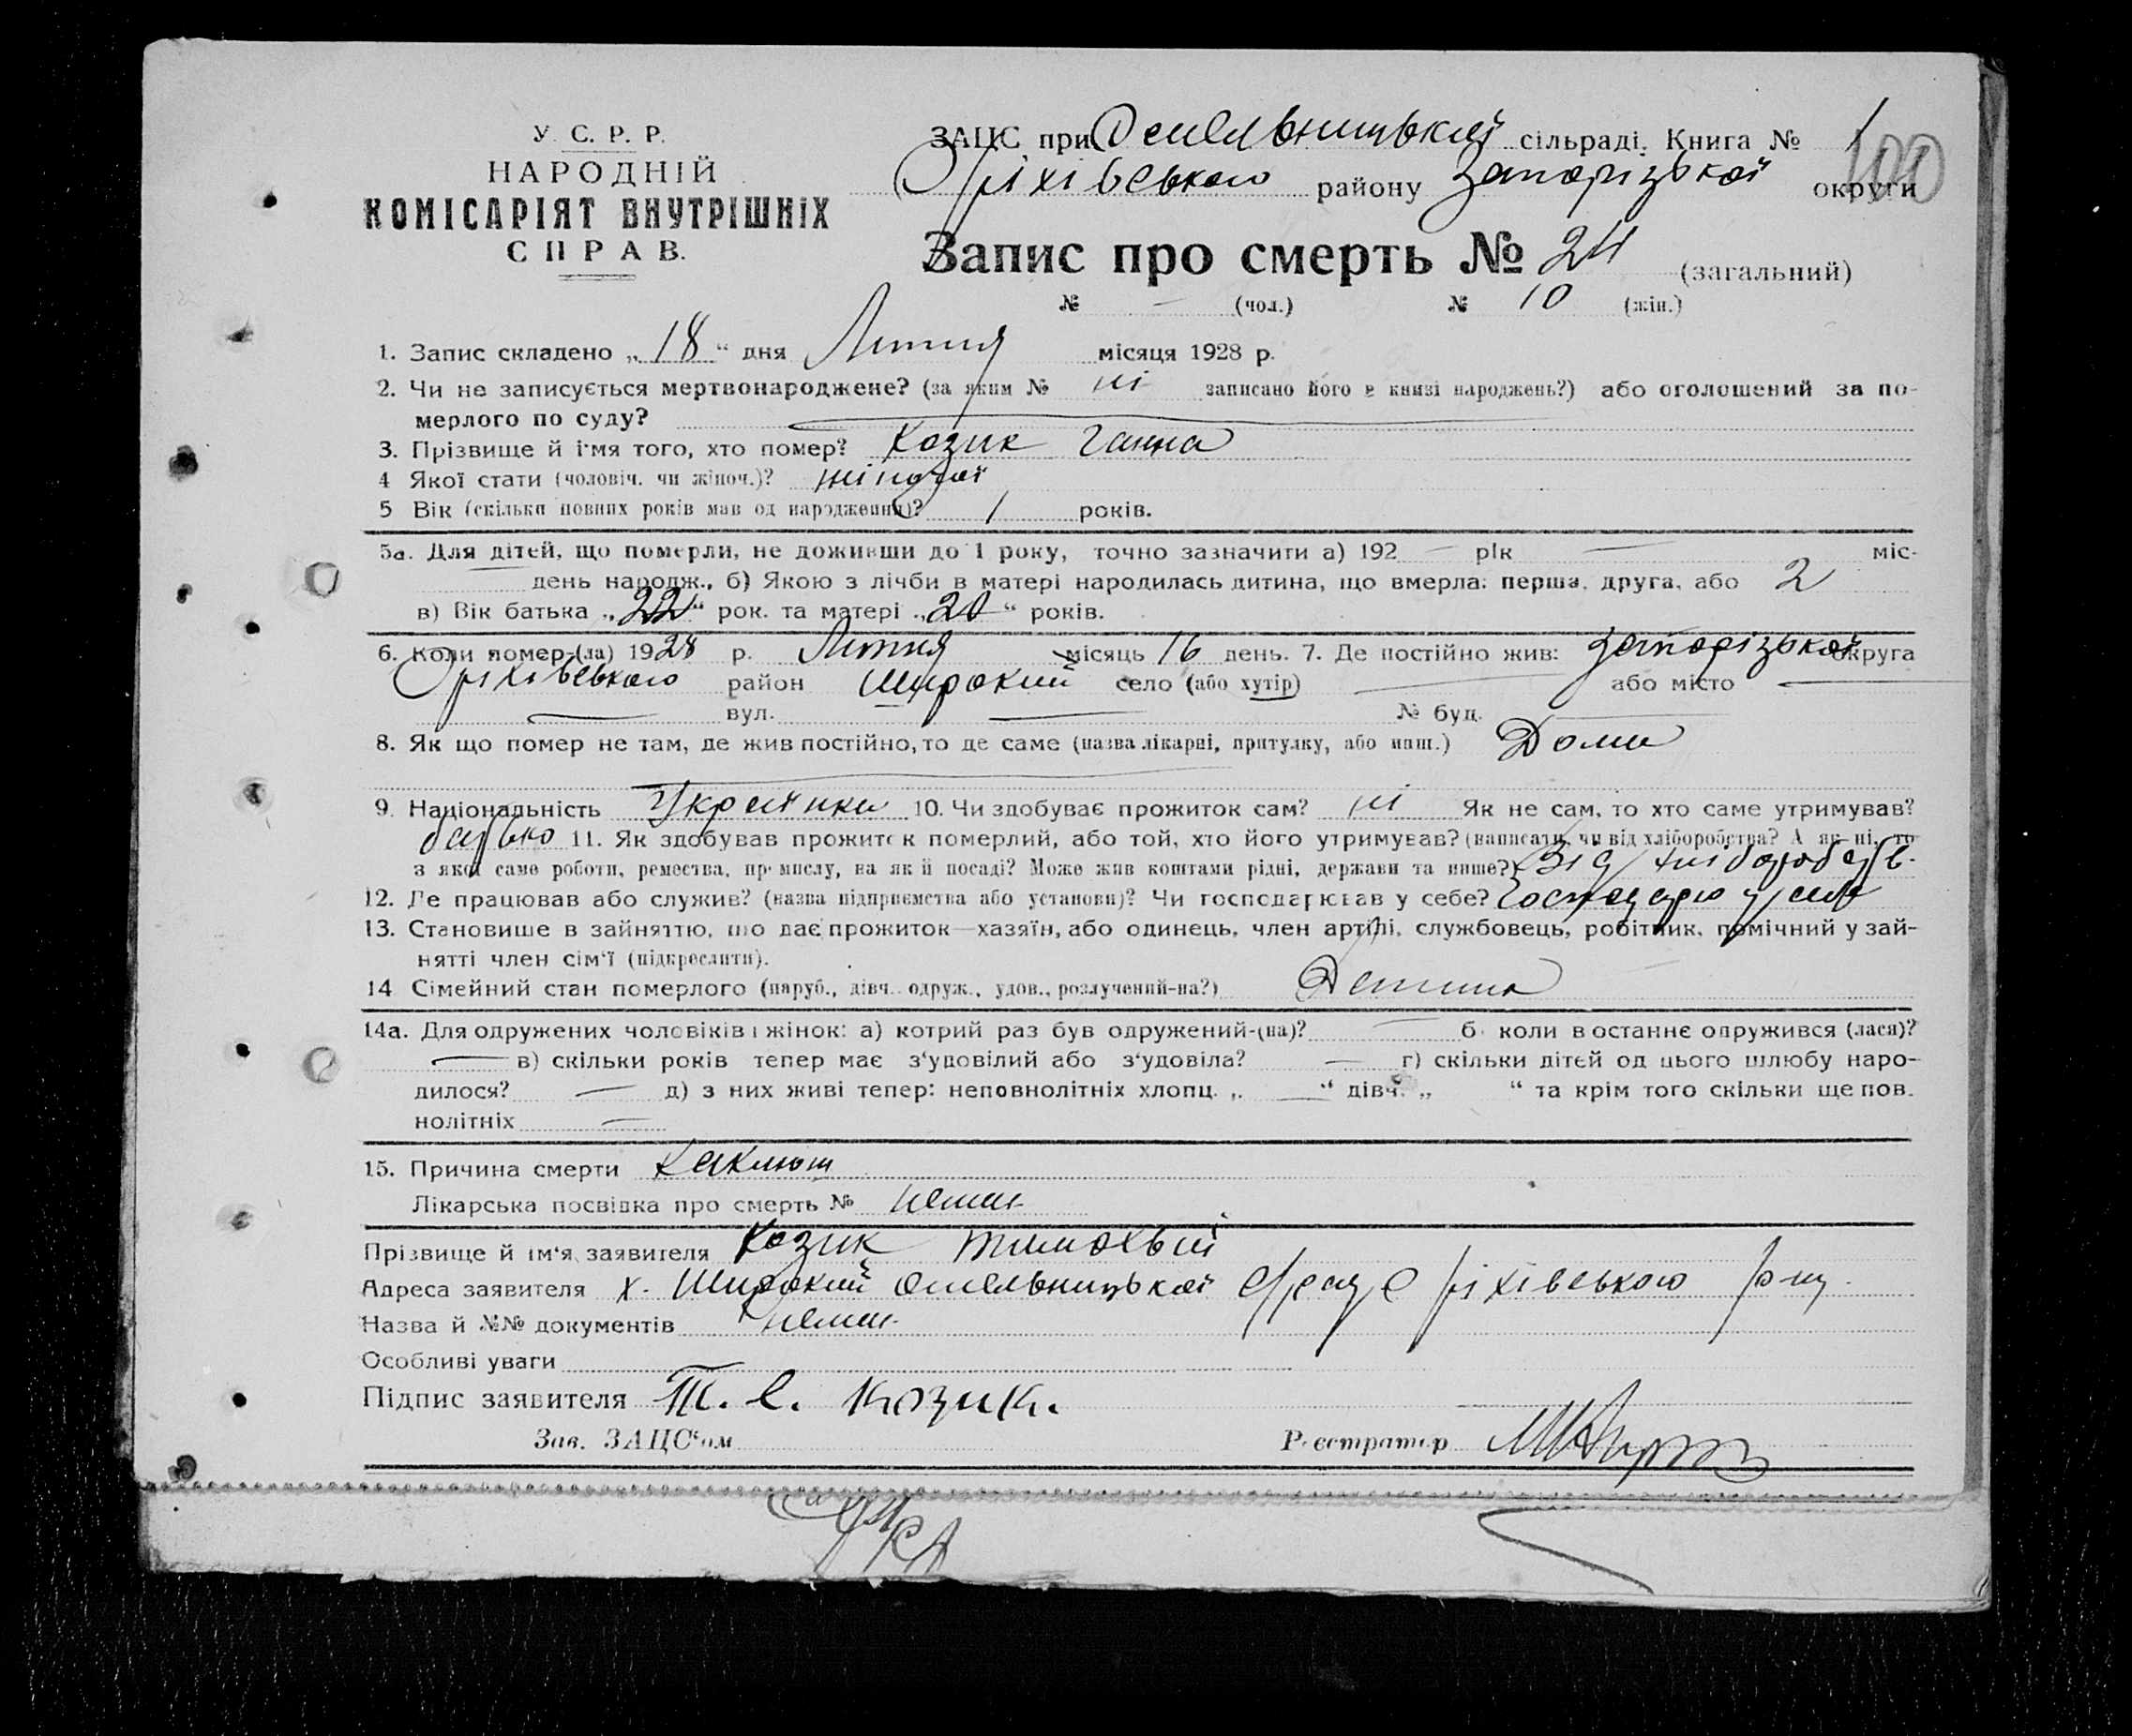 У. С. Р. Р.
НАРОДНІЙ
КОМІСАРІЯТ ВНУТРІШНІХ
СПРАВ.
ЗАЦС при Омельницької сільраді. Книга № 1
100
Оріхівського району Запорізької округи
Запис про смерть № 24 (загальний)
№ — (чол.) № 10 (жін.)
1. Запис складено „18“ дня Липня місяця 1928 р.
2. Чи не записується мертвонароджене? (за яким № ні записано його в книзі народжень?) або оголошений за по-
мерлого по суду? —
3. Прізвище й ім'я того, хто помер? Козик Ганна
4 Якої стати (чоловіч. чи жіноч.)? жіночої
5 Вік (скільки повних років мав од народження)? 1 років.
5а. Для дітей, що померли, не доживши до 1 року, точно зазначити а) 192 — рік — міс-
— день народж., б) Якою з лічби в матері народилась дитина, що вмерла: перша, друга, або 2
в) Вік батька „22“ рок. та матері „20“ років.
6. Коли помер-(ла) 1928 р. Липня місяць 16 день. 7. Де постійно жив: Запорізької округа
Оріхівського район Широкий село (або хутір) — або місто —
— вул. — № буд. —
8. Як що помер не там, де жив постійно, то де саме (назва лікарні, притулку, або инш.) Дома
9. Національність Українка 10. Чи здобуває прожиток сам? ні Як не сам, то хто саме утримував?
батько 11. Як здобував прожиток померлий, або той, хто його утримував? (написати, чи від хліборобства? А як ні, то
з якої саме роботи, ремества, промислу, на якій посаді? Може жив коштами рідні, держави та инше?) Від хліборобств.
12. Де працював або служив? (назва підприємства або установи)? Чи господарював у себе? Господарю у себе
13. Становише в зайняттю, що дає прожиток—хазяїн, або одинець, член артілі, службовець, робітник, помічний у зай-
нятті член сім'ї (підкреслити).
14 Сімейний стан померлого (паруб., дівч. одруж., удов., розлучений-на?) Детина
14а. Для одружених чоловіків і жінок: а) котрий раз був одружений-(на)? — б коли востаннє одружився (лася)?
— в) скільки років тепер має з'удовілий або з'удовіла? — г) скільки дітей од цього шлюбу наро-
дилося? — д) з них живі тепер: неповнолітніх хлопц. „ — “ дівч. „ “ та крім того скільки ще пов.
нолітніх —
15. Причина смерти Каклюш
Лікарська посвідка про смерть № немає
Прізвище й ім'я заявителя Козик Тимохвій
Адреса заявителя х. Широкий Омельницької с/рад Оріхівського р-ну.
Назва й №№ документів немає
Особливі уваги
Підпис заявителя Т. С. Козик.
Зав. ЗАЦС'ом Реєстратор